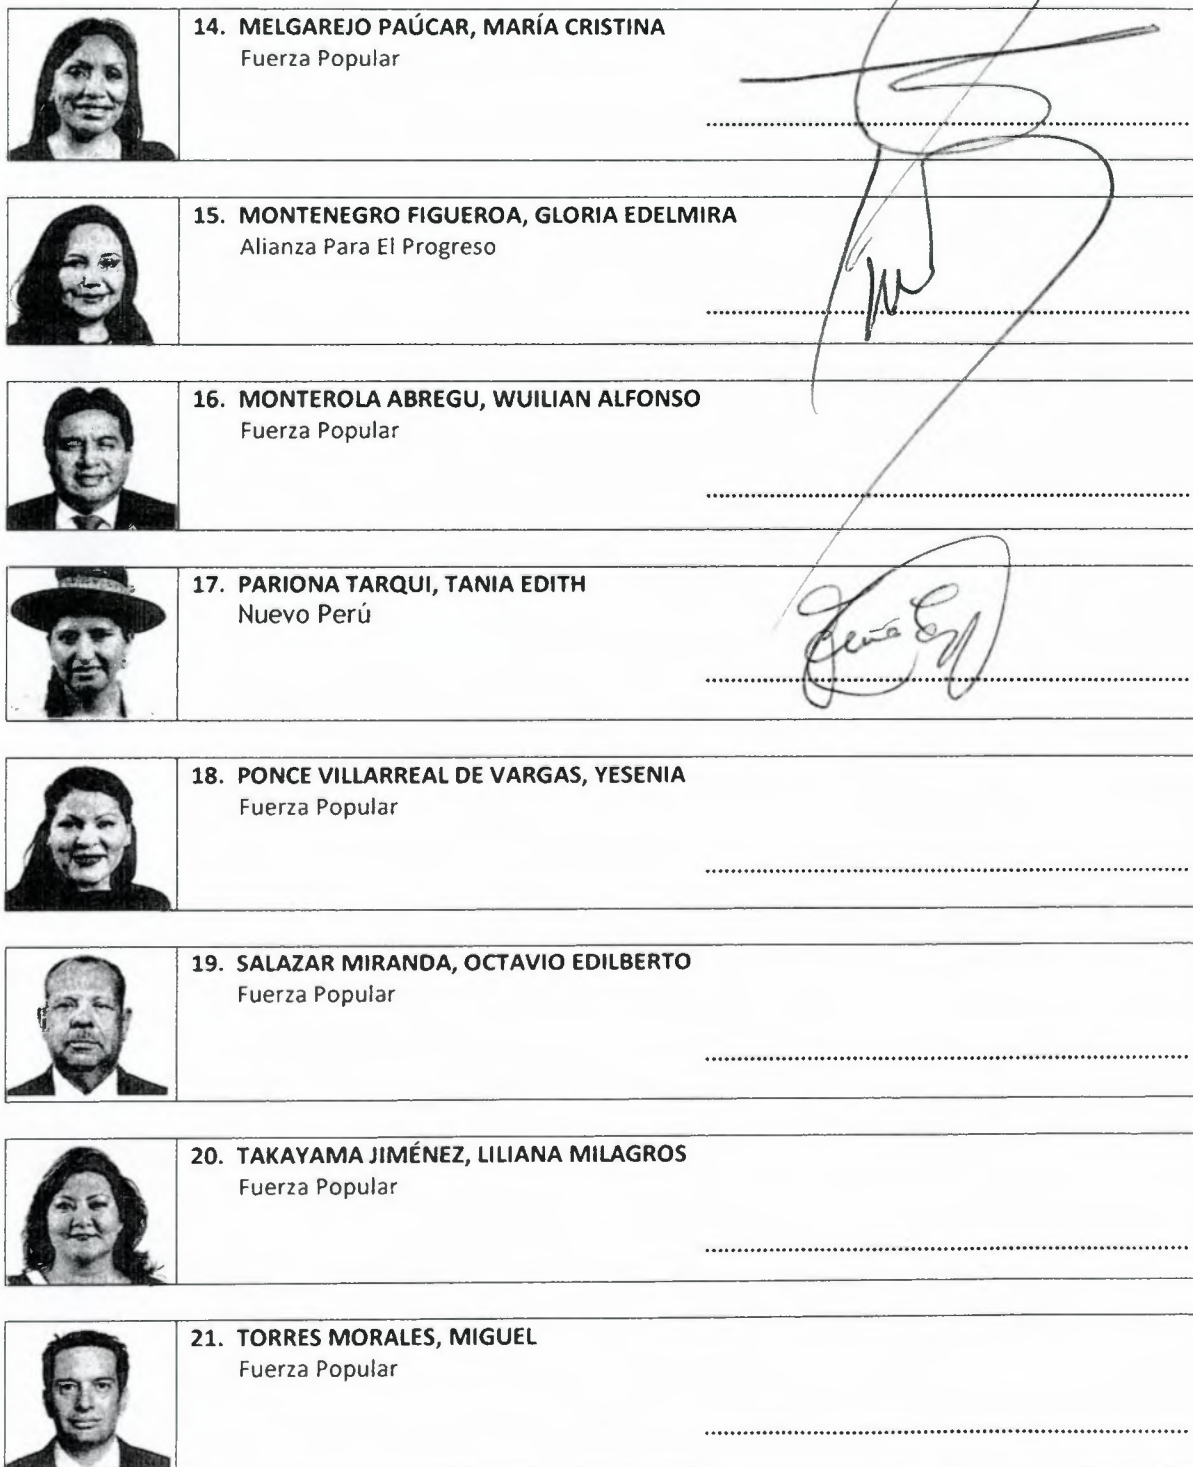 14. MELGAREJO PAÚCAR, MARÍA CRISTINA
Fuerza Popular
15. MONTENEGRO FIGUEROA, GLORIA EDELMIRA
Alianza Para El Progreso
16. MONTEROLA ABREGU, WUILIAN ALFONSO
Fuerza Popular
17. PARIONA TARQUI, TANIA EDITH
Nuevo Perú
18. PONCE VILLARREAL DE VARGAS, YESENIA
Fuerza Popular
19. SALAZAR MIRANDA, OCTAVIO EDILBERTO
Fuerza Popular
20. TAKAYAMA JIMÉNEZ, LILIANA MILAGROS
Fuerza Popular
21. TORRES MORALES, MIGUEL
Fuerza Popular